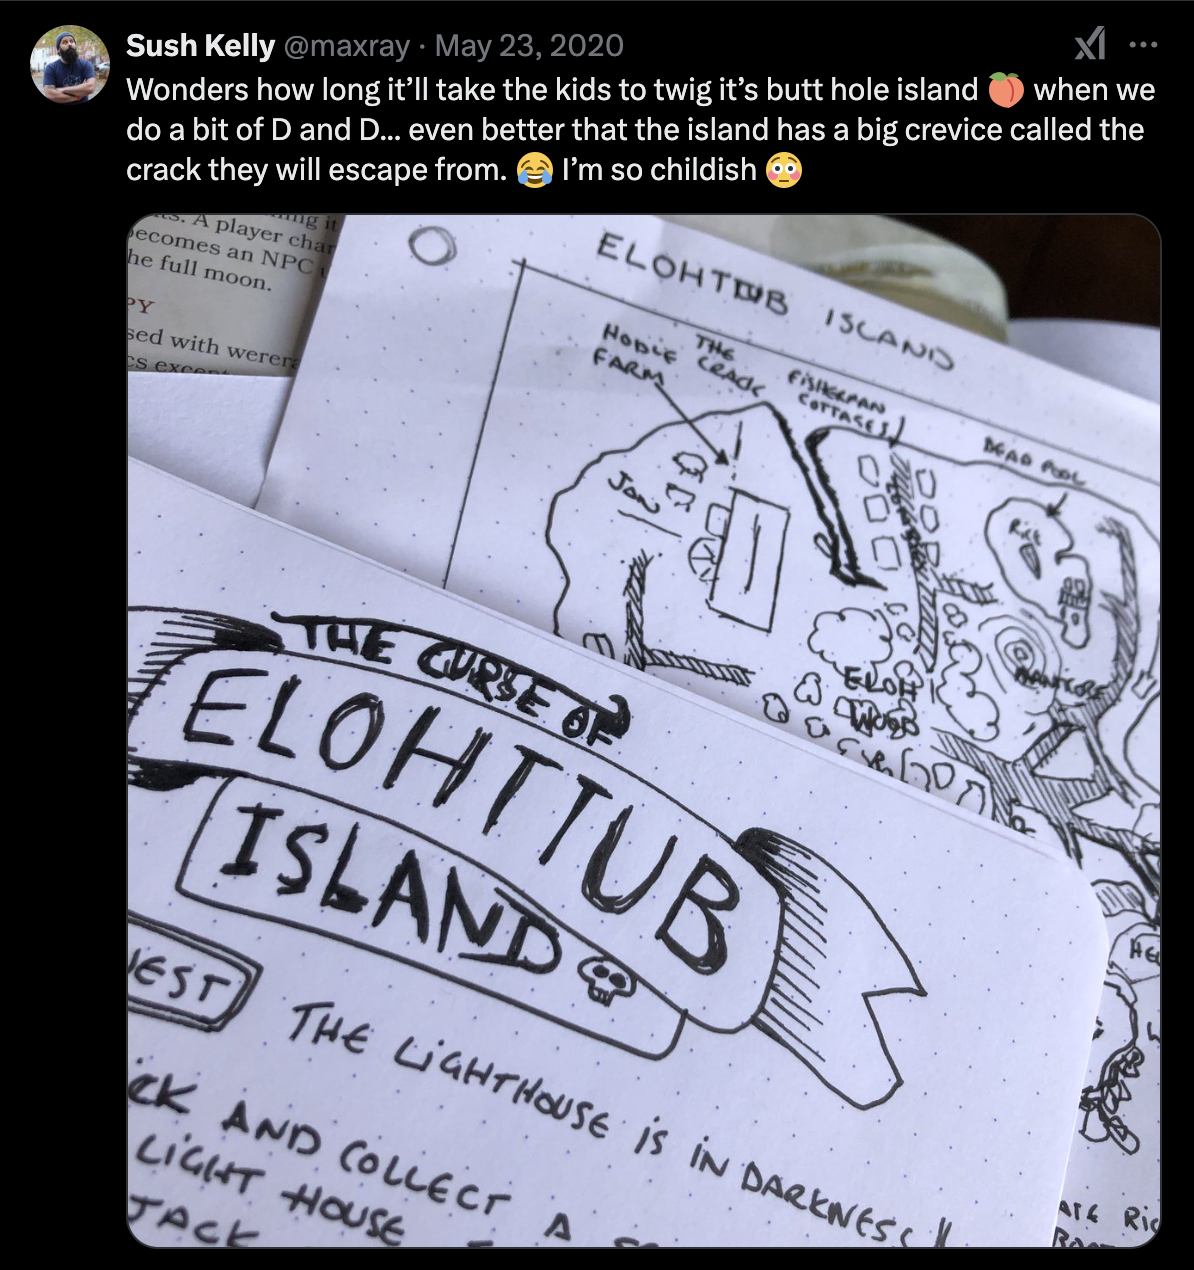 Sush Kelly @maxray · May 23, 2020
Wonders how long it’ll take the kids to twig it’s butt hole island 🍑 when we
do a bit of D and D... even better that the island has a big crevice called the
crack they will escape from. 😂 I’m so childish 😳
A player char
ecomes an NPC
he full moon.
PY
sed with werera
cs except
ELOHTTUB ISLAND
HODLE
FARM
THE
CRACK
FISHERMAN
COTTAGES
DEAD POOL
JON
RICK
MANTICORE
ELOH
WOOD
THE CURSE OF
ELOHTTUB
ISLAND
HE
EST
THE LIGHTHOUSE IS IN DARKNESS!!
CK AND COLLECT A
LIGHT HOUSE
JACK
ATE RIC
BOAT